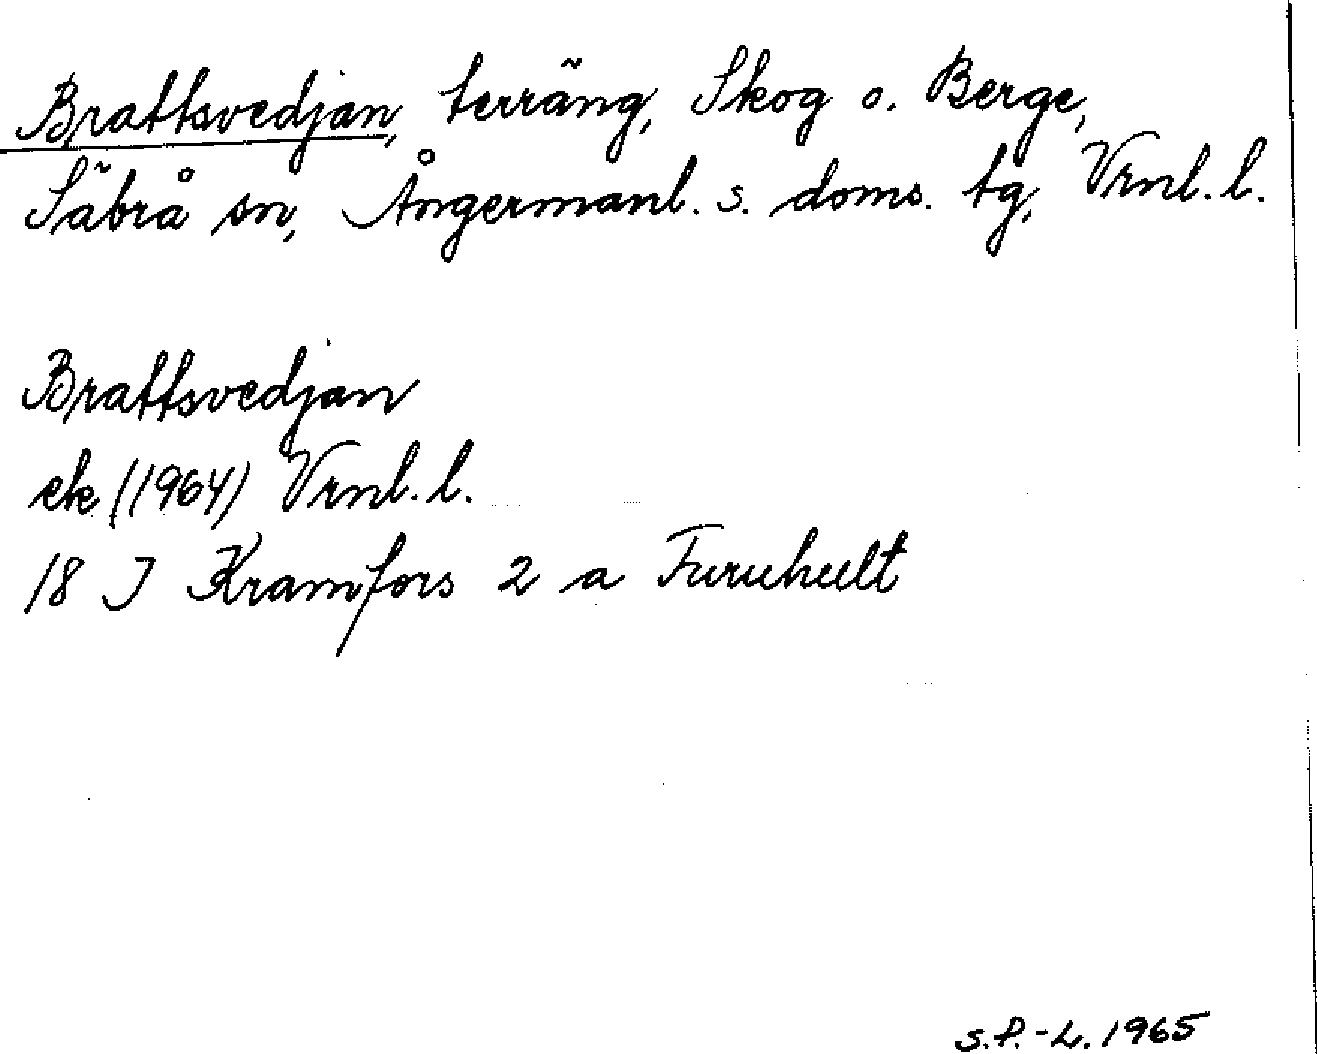 Brattsvedjan, terräng, Skog o. Berge,
Säbrå sn, Ångermanl. s. doms. tg, Vrnl. l.
Brattsvedjan
ek (1964) Vrnl. l.
18 J Kramfors 2 a Furuhult
S.P.-L. 1965